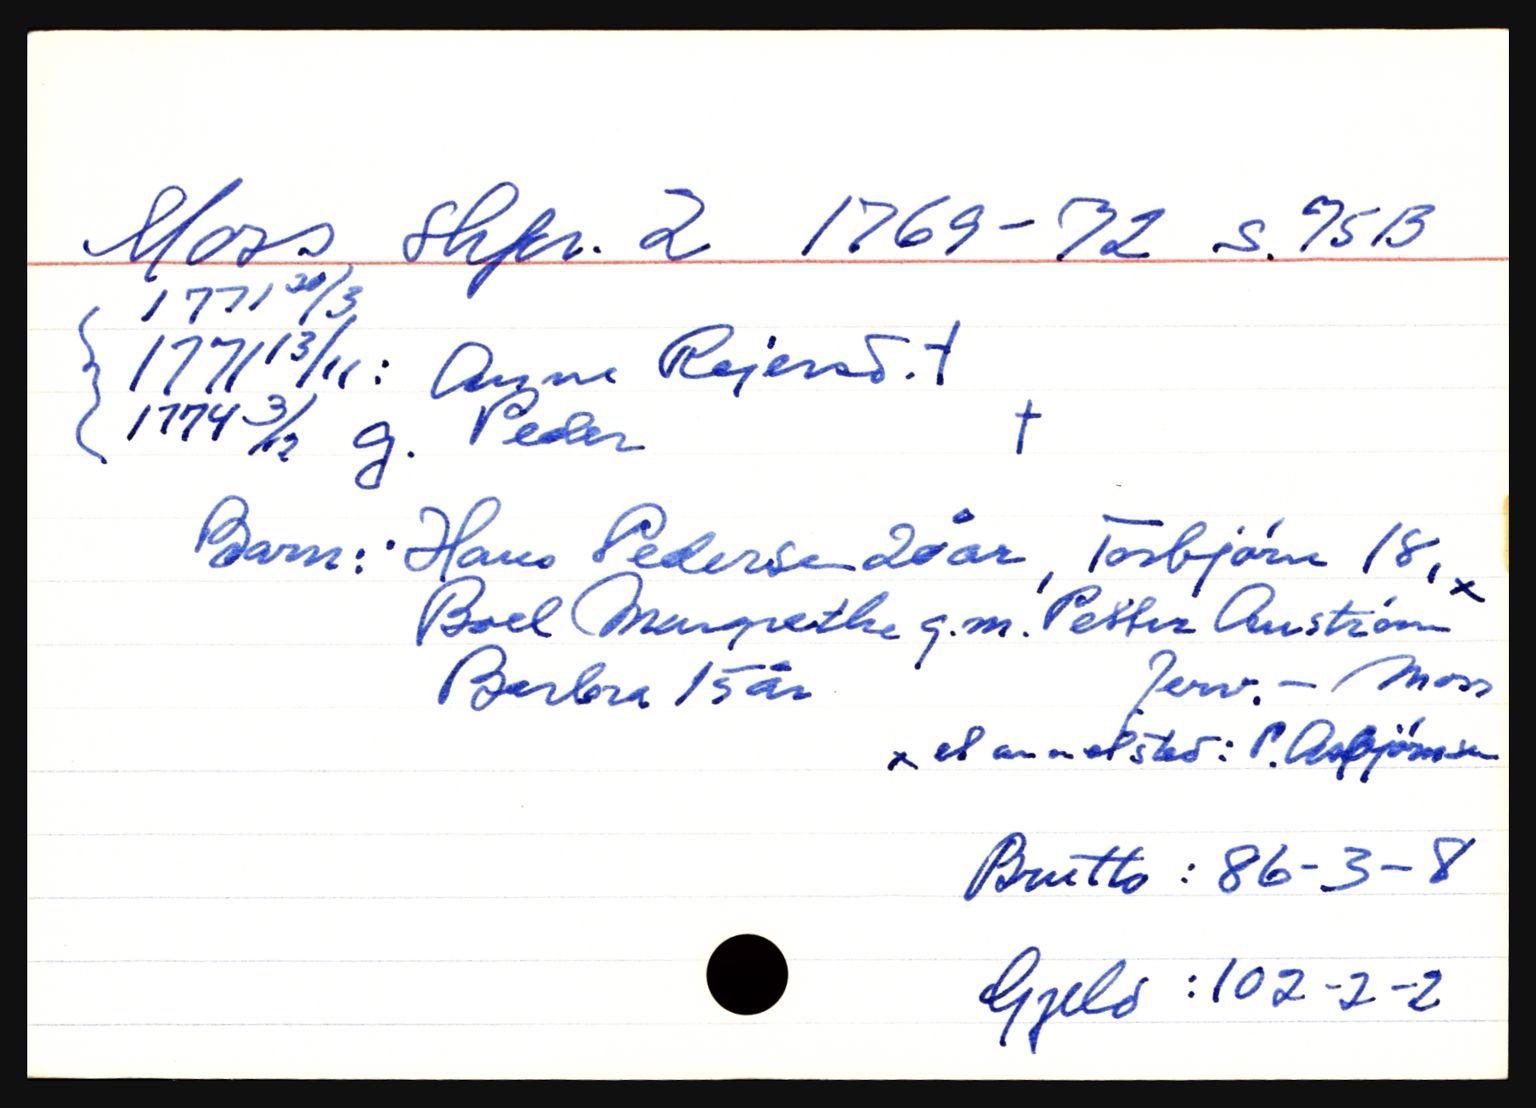 Moss Skfpr. 2 1769-72 s. 75B
1771 20/3
1771 13/11: Anne Rejersd. †
1774 3/12 g. Peder †
Barn: Hans Pedersen 20 år, Torbjørn 18, x
Boel Margrethe g.m. Petter Anström
Barbra 15 år Jerv. - Moss
x et annet sted: P. Asbjørnsen
Brutto: 86-3-8
Gjeld: 102-2-2